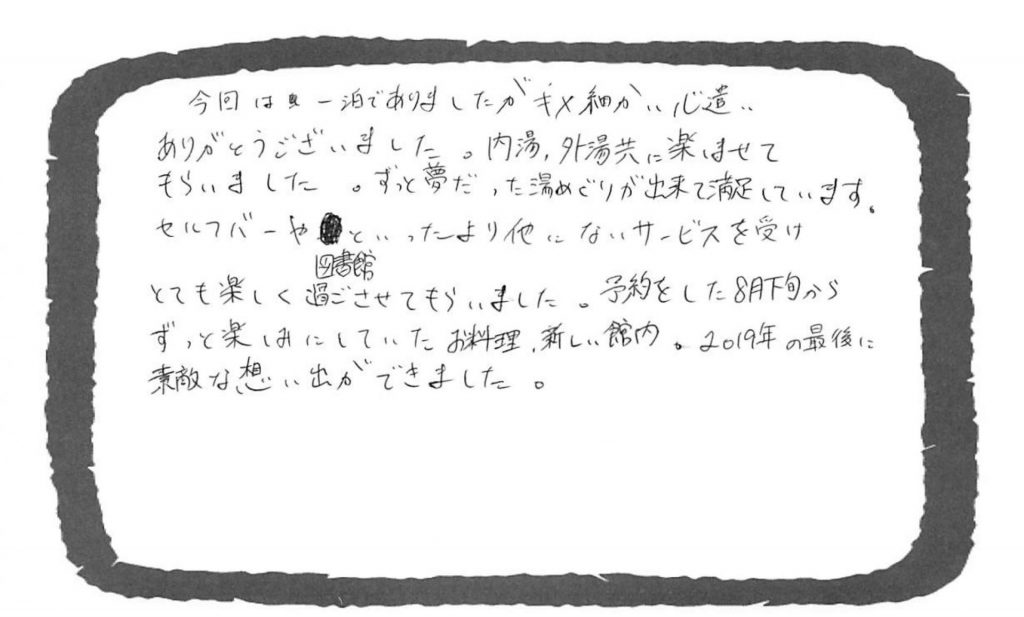 今回は一泊でありましたがキメ細かい心遣い
ありがとうございました。内湯、外湯共に楽ませて
もらいました。ずっと夢だった湯めぐりが出来て満足しています。
セルフバーや図書館といったより他にないサービスを受け
とても楽しく過ごさせてもらいました。予約をした8月下旬から
ずっと楽しみにしていたお料理、新しい館内。2019年の最後に
素敵な想い出ができました。